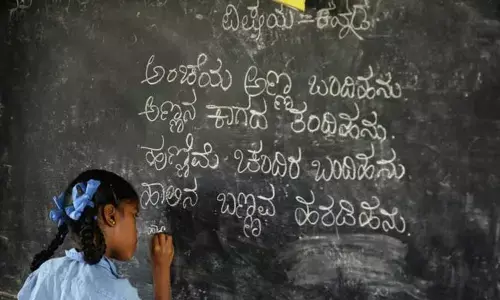 ವಿಷಯ = ಕನ್ನಡ.
ಅಂಚೆಯ ಅಣ್ಣ ಬಂದಿಹನು
ಅಣ್ಣನ ಕಾಗದ ತಂದಿಹನು.
ಹುಣ್ಣಿಮೆ ಚಂದಿರ ಬಂದಿಹನು.
ಹಾಲಿನ ಬಣ್ಣವ ಹರಡಿಹನು.